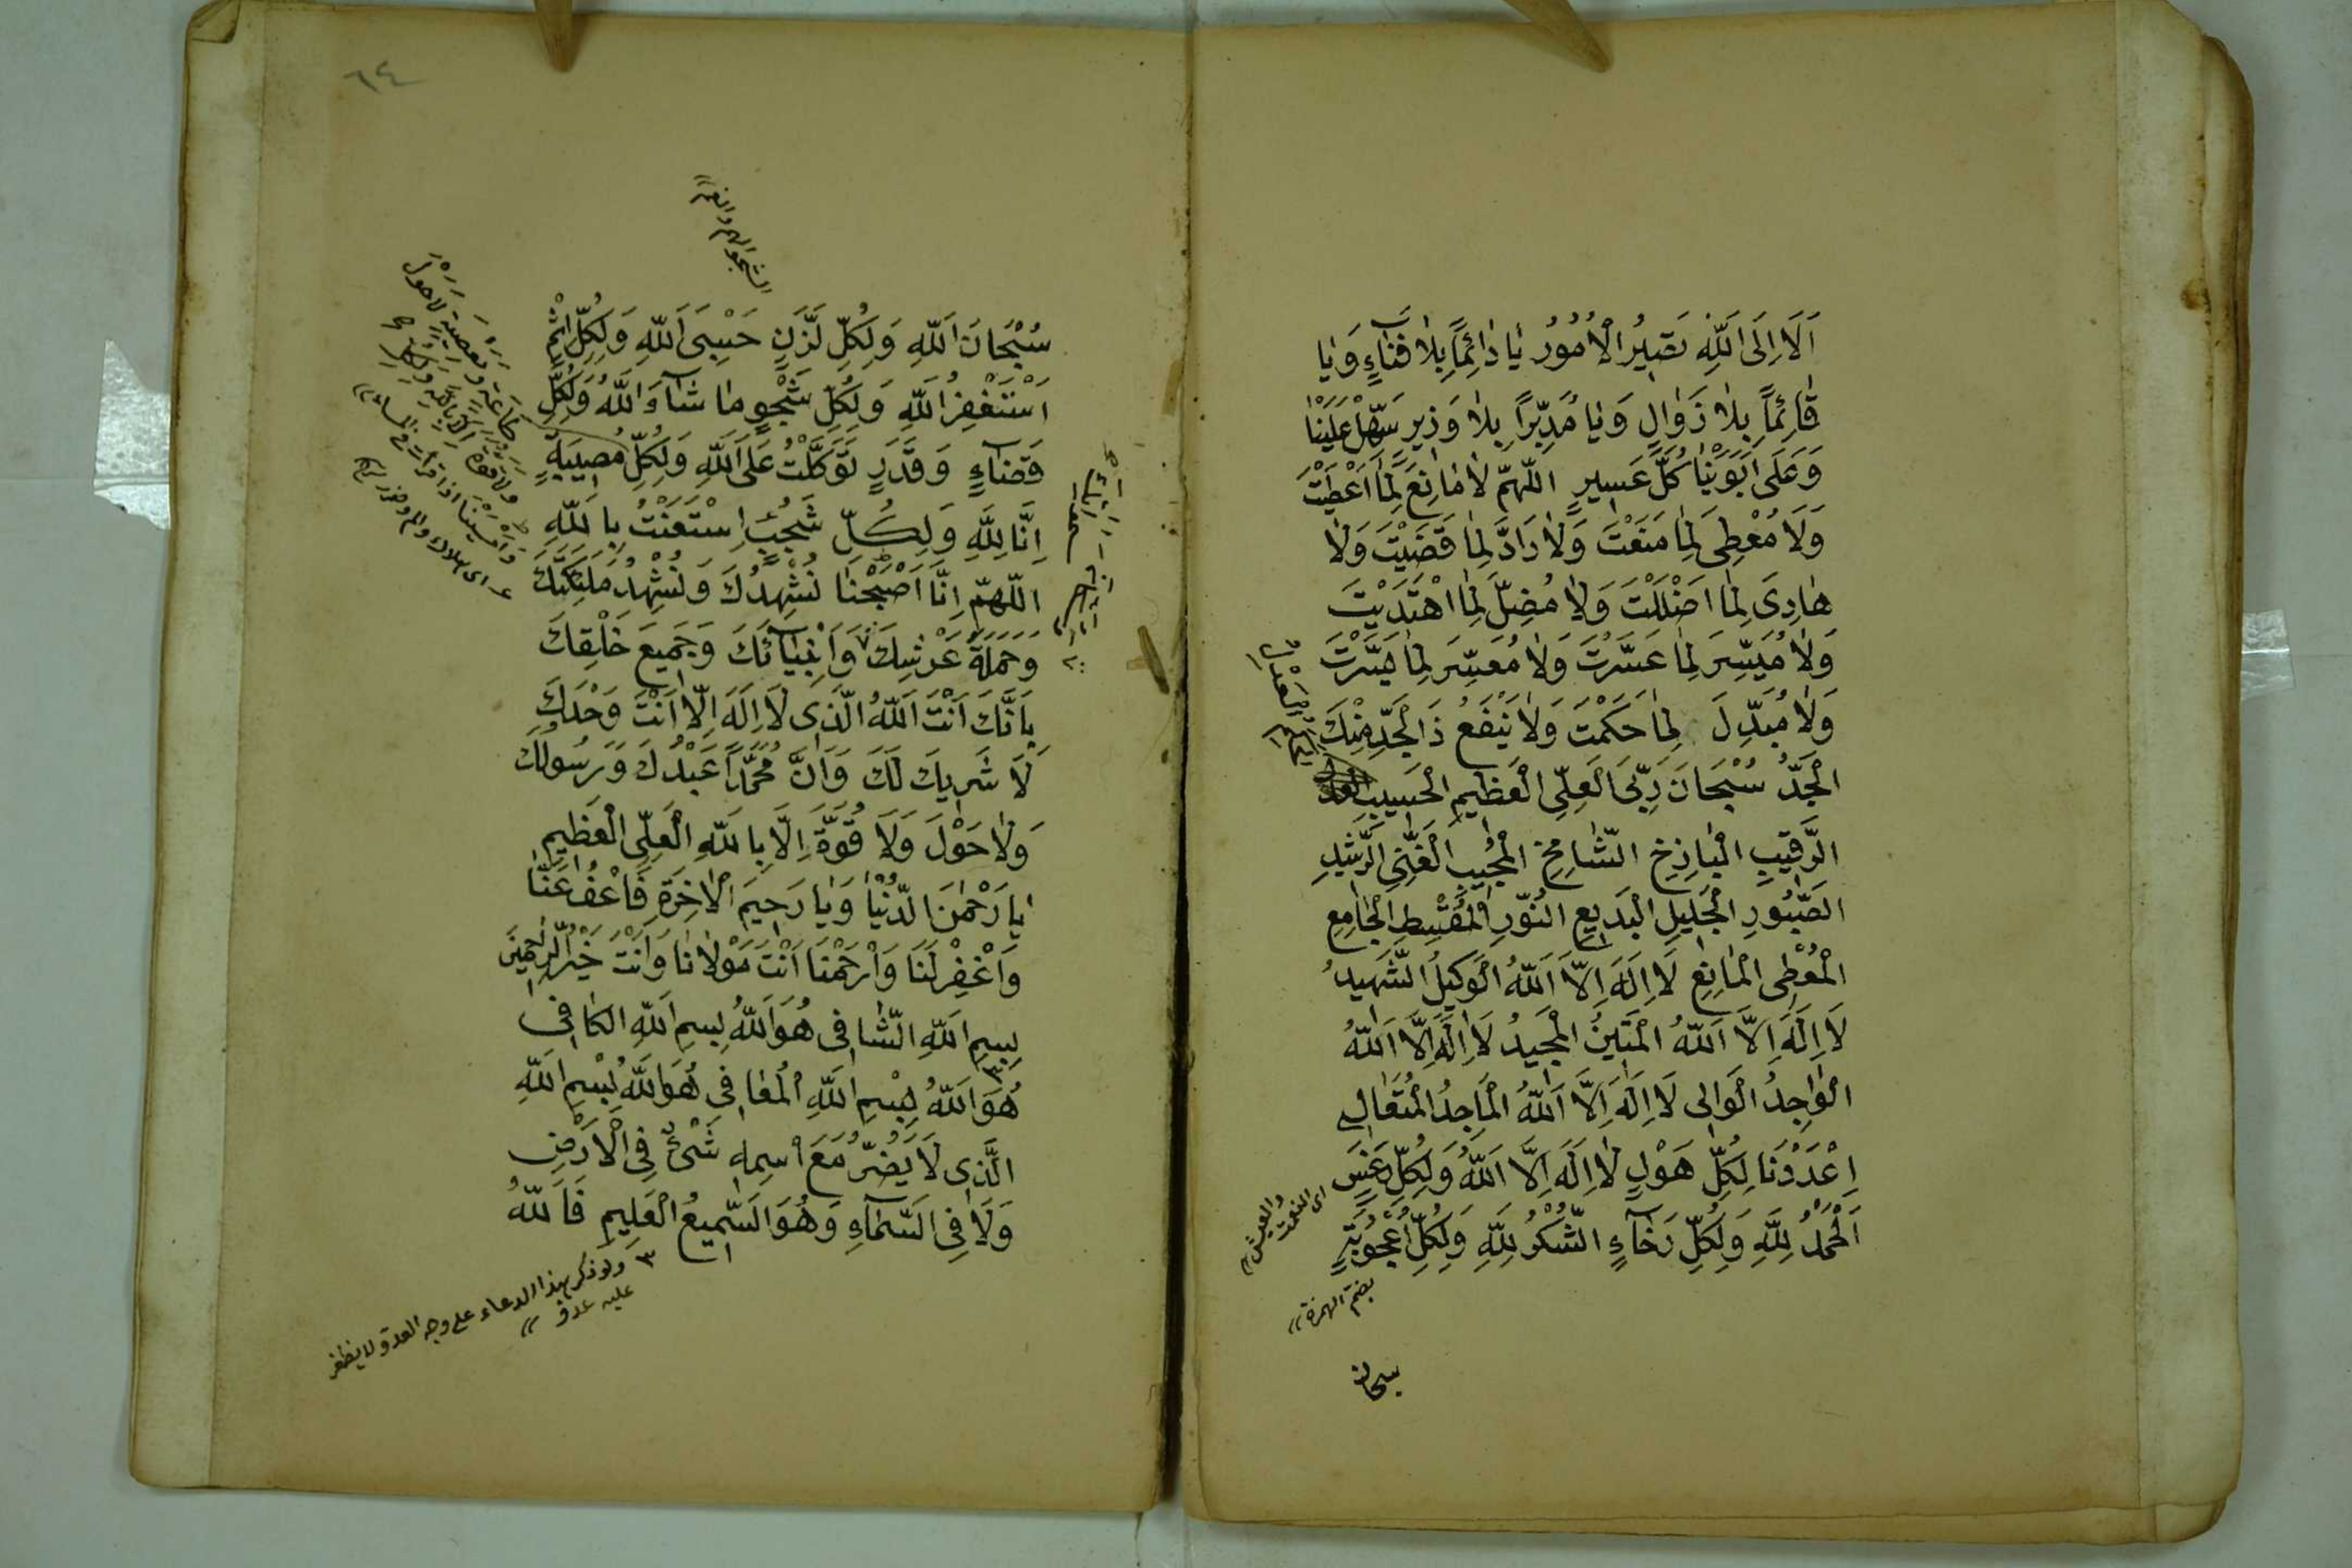 اَلَا اِلَى اللّٰهِ تَصِيرُ الْاُمُورُ يَا دَائِمًا بِلَا فَنَاءٍ وَيَا
قَائِمًا بِلَا زَوَالٍ وَيَا مُدَبِّرًا بِلَا وَزِيرٍ سَهِّلْ عَلَيْنَا
وَعَلَى اَبَوَيْنَا كُلَّ عَسِيرٍ اللّٰهُمَّ لَا مَانِعَ لِمَا اَعْطَيْتَ
وَلَا مُعْطِىَ لِمَا مَنَعْتَ وَلَا رَادَّ لِمَا قَضَيْتَ وَلَا
هَادِىَ لِمَا اَضْلَلْتَ وَلَا مُضِلَّ لِمَا اهْتَدَيْتَ
وَلَا مُيَسِّرَ لِمَا عَسَّرْتَ وَلَا مُعَسِّرَ لِمَا يَسَّرْتَ
وَلَا مُبَدِّلَ لِمَا حَكَمْتَ وَلَا يَنْفَعُ ذَا الْجَدِّ مِنْكَ
الْجَدُّ سُبْحَانَ رَبِّىَ الْعَلِىِّ الْعَظِيمِ الْحَسِيبِ
الرَّقِيبِ الْبَاذِخِ الشَّامِخِ الْمُجِيبِ الْغَنِىِّ الرَّشِيدِ
الصَّبُورِ الْجَلِيلِ الْبَدِيعِ النُّورِ الْمُقْسِطِ الْجَامِعِ
الْمُعْطِى الْمَانِعِ لَا اِلَهَ اِلَّا اللّٰهُ الْوَكِيلُ الشَّهِيدُ
لَا اِلَهَ اِلَّا اللّٰهُ الْمَتِينُ الْمَجِيدُ لَا اِلَهَ اِلَّا اللّٰهُ
الْوَاجِدُ الْوَالِى لَا اِلَهَ اِلَّا اللّٰهُ الْمَاجِدُ الْمُتَعَالِ
اِعْدَدْنَا لِكُلِّ هَوْلٍ لَا اِلَهَ اِلَّا اللّٰهُ وَلِكُلِّ
اَلْحَمْدُ لِلّٰهِ وَلِكُلِّ رَخَاءٍ الشُّكْرُ لِلّٰهِ وَلِكُلِّ اُعْجُوبَةٍ
اى النعمت
والعيش
بضم الهمزة
سبحان
٦٤
سُبْحَانَ اللّٰهِ وَلِكُلِّ لَزَنٍ حَسْبِىَ اللّٰهُ وَلِكُلِّ اِثْمٍ
اَسْتَغْفِرُ اللّٰهَ وَلِكُلِّ شَجْوٍ مَا شَاءَ اللّٰهُ وَلِكُلِّ
قَضَاءٍ وَقَدَرٍ تَوَكَّلْتُ عَلَى اللّٰهِ وَلِكُلِّ مُصِيبَةٍ
اِنَّا لِلّٰهِ وَلِكُلِّ شَجُبٍ اِسْتَعَنْتُ بِاللّٰهِ
اللّٰهُمَّ اِنَّا اَصْبَحْنَا نُشْهِدُكَ وَنُشْهِدُ مَلٰئِكَتَكَ
وَحَمَلَةَ عَرْشِكَ وَاَنْبِيَائَكَ وَجَمِيعَ خَلْقِكَ
بِاَنَّكَ اَنْتَ اللّٰهُ الَّذِى لَا اِلَهَ اِلَّا اَنْتَ وَحْدَكَ
لَا شَرِيكَ لَكَ وَاَنَّ مُحَمَّدًا عَبْدُكَ وَرَسُولُكَ
وَلَا حَوْلَ وَلَا قُوَّةَ اِلَّا بِاللّٰهِ الْعَلِىِّ الْعَظِيمِ
يَا رَحْمٰنَ الدُّنْيَا وَيَا رَحِيمَ الْاٰخِرَةِ فَاعْفُ عَنَّا
وَاغْفِرْ لَنَا وَارْحَمْنَا اَنْتَ مَوْلَانَا وَاَنْتَ خَيْرُ الرَّاحِمِينَ
بِسْمِ اللّٰهِ الشَّافِى هُوَ اللّٰهُ بِسْمِ اللّٰهِ الْكَافِى
هُوَ اللّٰهُ بِسْمِ اللّٰهِ الْمُعَافِى هُوَ اللّٰهُ بِسْمِ اللّٰهِ
الَّذِى لَا يَضُرُّ مَعَ اسْمِهِ شَىْءٌ فِى الْاَرْضِ
وَلَا فِى السَّمَاءِ وَهُوَ السَّمِيعُ الْعَلِيمُ فَاللّٰهُ
طَاعَةٍ وَمَعْصِيَةٍ لَا حَوْلَ
وَلَا قُوَّةَ اِلَّا بِاللّٰهِ
٣ ولو ذكر بهذا الدعاء على وجه العدو لا يظفر
عليه عدو